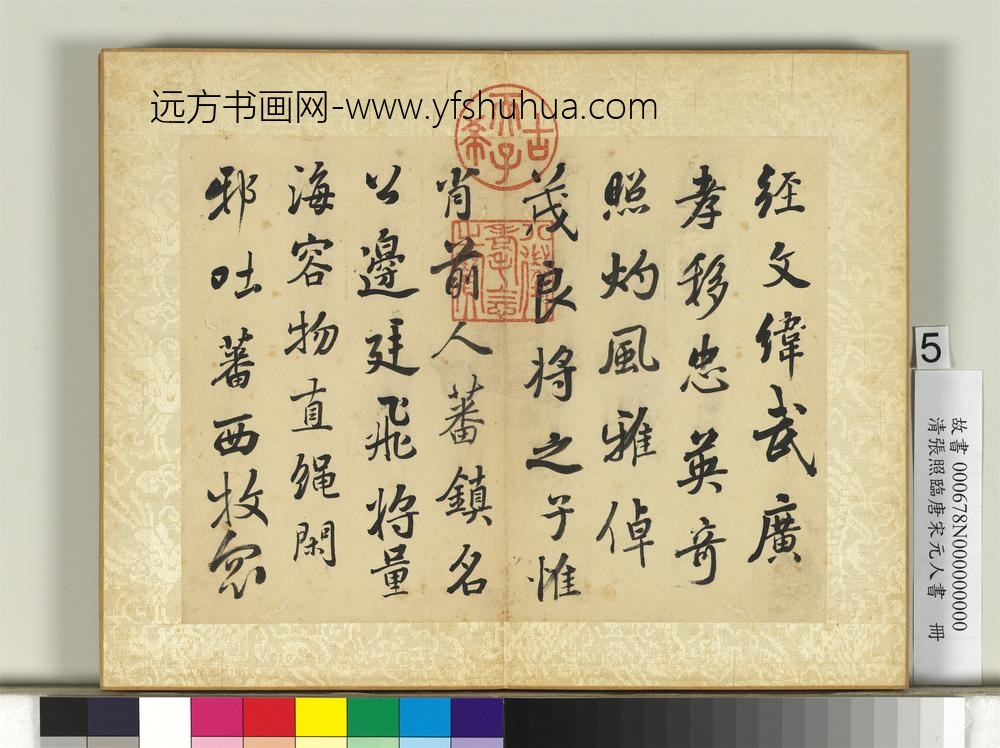 远方书画网-www.yfshuhua.com
古希天子
經文緯武廣
孝移忠英奇
照灼風雅倬
茂良將之子惟
肖前人蕃鎮名
公邊廷飛將量
海容物直繩閑
邪吐蕃西牧
5
故書 000678N000000000
清張照臨唐宋元人書 冊